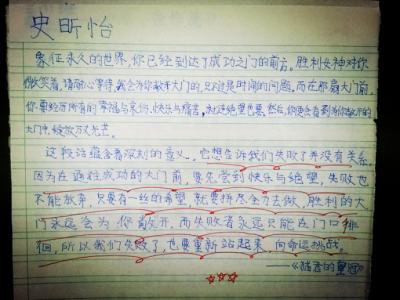 史昕怡
象征永久的世界,你已经到达了成功之门的前方。胜利女神对你
微笑着,请耐心等待,我会为你敞开大门的,只不过是时间的问题。而在那扇大门前,
你要经历所有的幸福与哀伤、快乐与痛苦,就连绝望也要,然后,你便会看到为你敞开的
大门中,绽放万丈光芒。
这段话蕴含着深刻的意义。它想告诉我们失败了并没有关系。
因为在通往成功的大门前,要先尝到快乐与绝望,失败也
不能放弃,只要有一丝的希望,就要拼尽全力去做,胜利的大
门永远会为你敞开,而失败者永远只能在门口徘
徊,所以我们失败了,也要重新站起来,向命运挑战。
——《的皇冠》